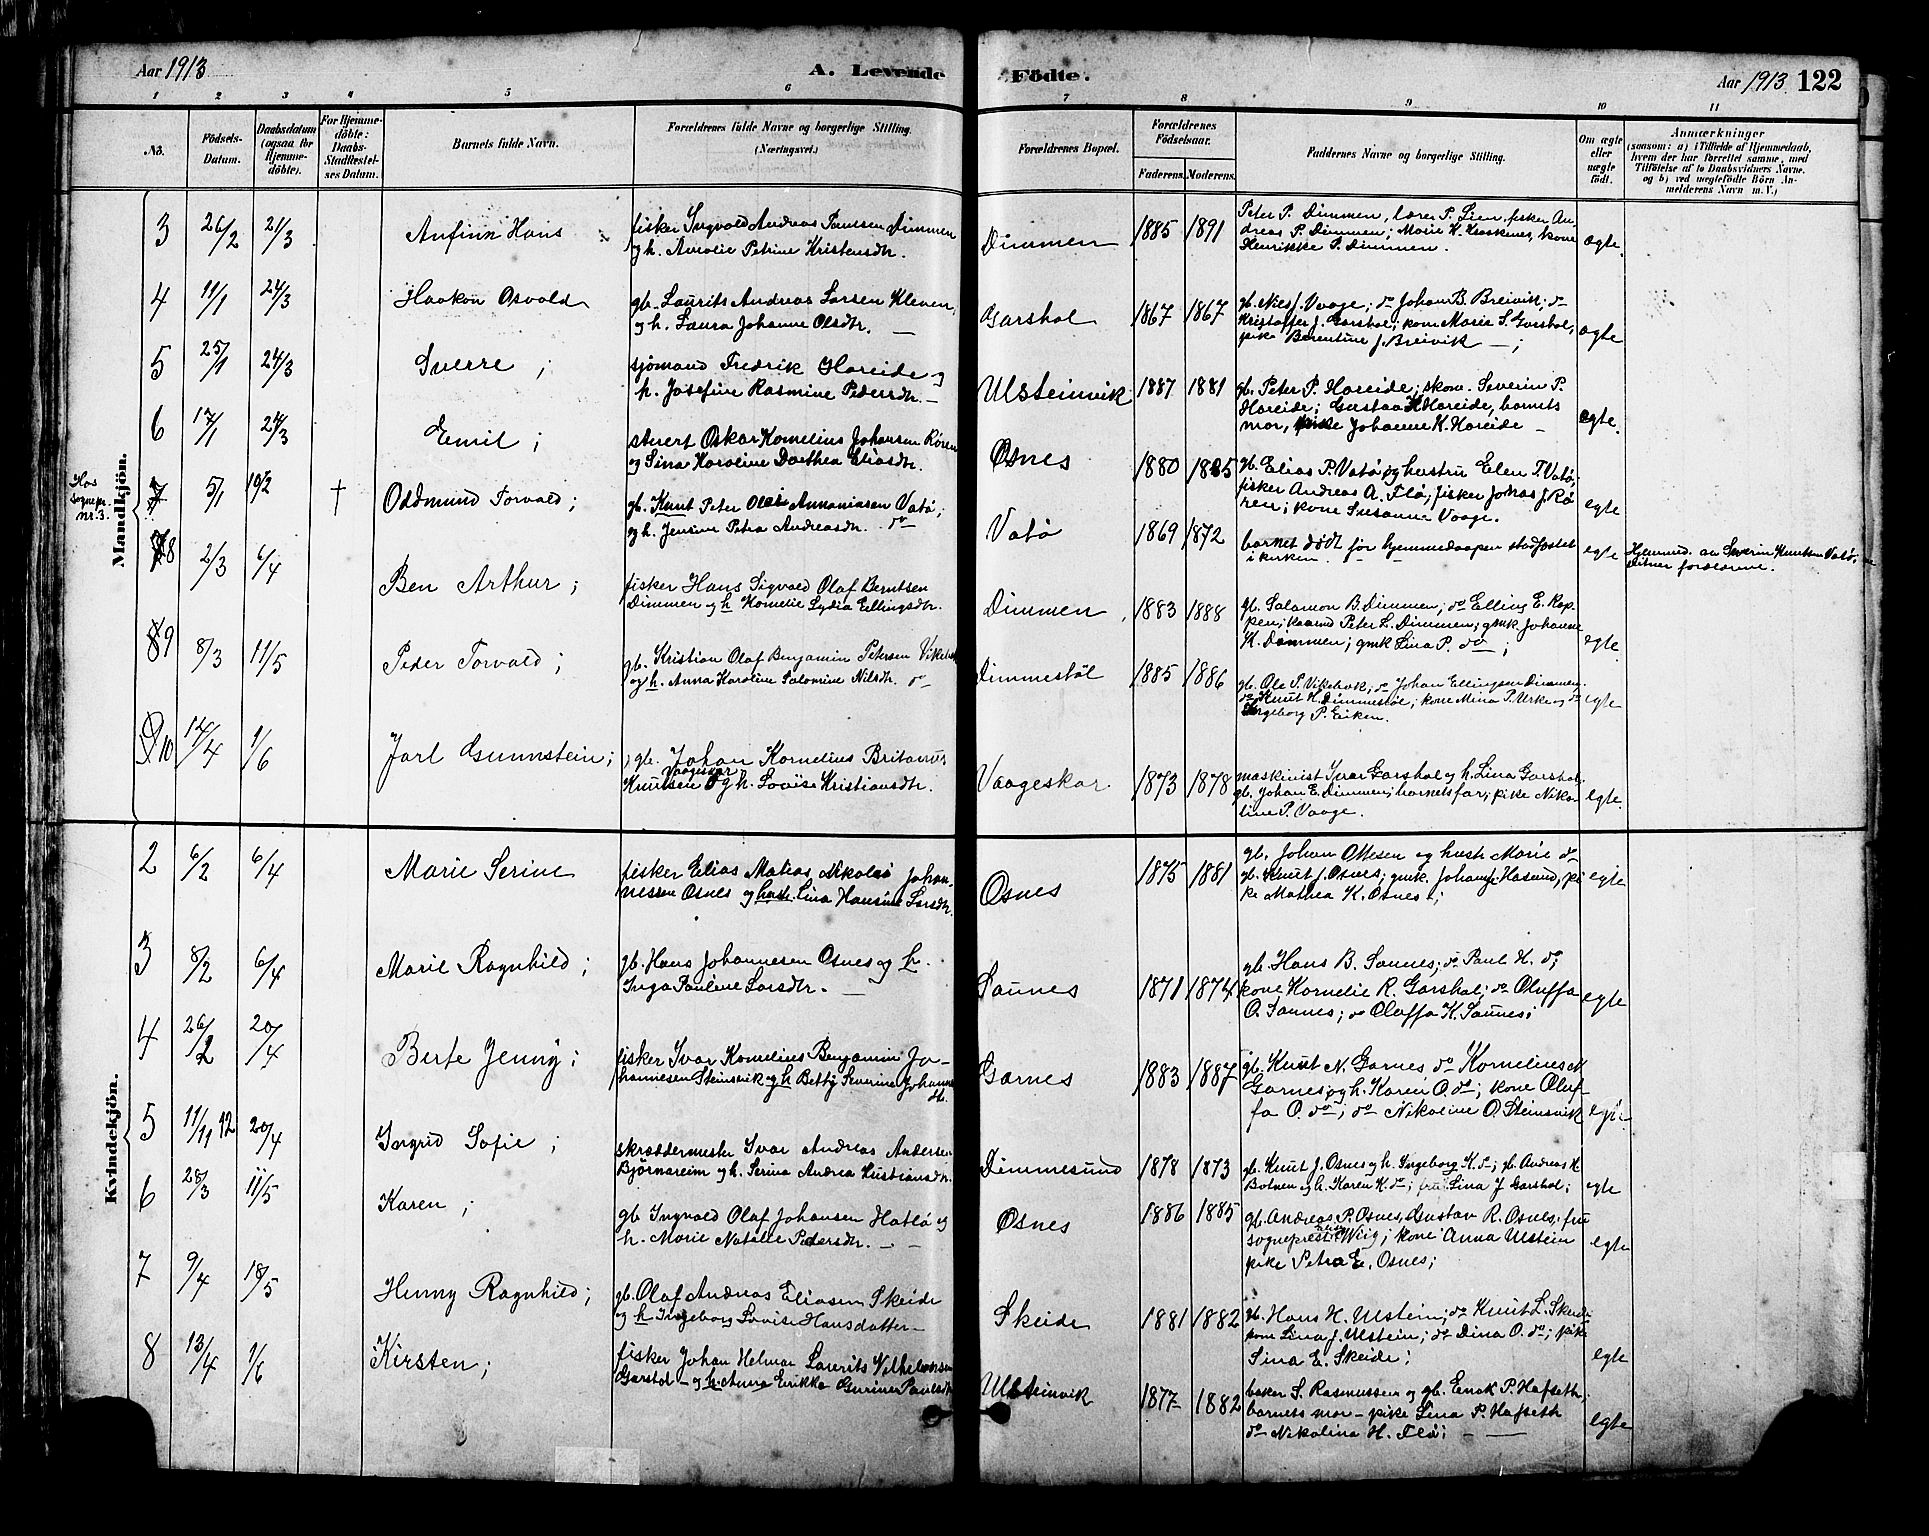 Aar 1913 A. Levende Födte. Aar 1913 122
1 2 3 4 5 6 7 8 9 10 11
No. Födsels-Datum. Daabsdatum (ogsaa for Hjemme-döbte). For Hjemme-döbte: Daabs-Stadfæstel-ses Datum. Barnets fulde Navn. Forældrenes fulde Navne og borgerlige Stilling. (Næringsvei.) Forældrenes Bopæl. Forældrenes Födselsaar. Faderens. Moderens. Faddernes Navne og borgerlige Stilling. Om ægte eller uægte födt. Anmærkninger (saasom: a) i Tilfælde af Hjemmedaab, hvem der har forrettet samme, med Tilföielse af to Daabsvidners Navne. og b) ved uægtefödte Börn An-melderens Navn m. V.)
Mandkjön.
3 26/2 21/3 Anfinn Hans fisker Ingvald Andreas Dimmen
og h. Petrine Kristensdtr. Dimmen 1885 1891 Peter P. Dimmen, lærer P. Lien, fisker An-
dreas P. Dimmen; Marie K. kone
Henrikke P. Dimmen. ægte
4 11/1 24/3 Haakon Osvald gb. Laurits Andreas Larsen Kleven,
og h. Laura Johanne Olsdtr. — Garshol 1867 1867 gb. Nils J. Vaage; do Johan B. Breivik; do
Kristoffer J. Garshol; kone Marie S. Garshol,
pike Berentine J. Breivik — ; ægte
5 25/1 24/3 Sverre ; sjømand Fredrik Hareide og
h. Josefine Rasmine Pedersdtr. — Ulsteinvik 1887 1881 gb. Peter P. Hareide; skom. Severin P.
Hareide; Gustav K. Hareide, barnets
mor, pike Johanne K. Hareide — egte.
6 17/1 24/3 Emil ; stuert Oskar Kornelius Johansen Røren
og Sina Karoline Dorthea Eliasdtr. Osnes 1880 1885 gb. Elias P. Vatø og hustru Elen T. Vatø;
fisker Andreas A. Flø; fisker Johas J. Rø
ren; kone Susanne Vaage. egte
Hos sognepr. nr. 3.
7 5/1 19/2 † Oddmund Torvald; gb. Knut Peter Olai Annaniassen Vatø;
og h. Jensine Petra Andreasdtr. do Vatø 1869 1872 barnet død før hjemmedaapen stadfæstet
i kirken. egte Hjemmed. av Severin Knutsen Vatø,
Vitner forældrene.
8 2/3 6/4 Ben Arthur ; fisker Hans Sigvald Olaf Berntsen
Dimmen og h Kornelie Lydia Ellingsdtr. Dimmen 1883 1888 gb. Salamon B. Dimmen; do Elling E. Rep-
pen; kaarmd Peter L. Dimmen; gmk. Johanne
K. Dimmen; gmk Lina P. do ; egte.
9 8/3 11/5 Peder Torvald ; gb. Kristian Olaf Benjamin Petersen
og h. Anna Karoline Salomine Nilsdtr. do Dimmestøl 1885 1886 gb. Ole P. Vikebak; do Johan Ellingsen Dimmen;
do Knut K. Dimmestøl; kone Mina P. Urke og do
Ingeborg P. Eiken. egte
10 14/4 1/6 Jarl Gunnstein ; gb. Johan Kornelius Britanus
Knutsen Vaageskar og h. Lovise Kristiansdtr. Vaageskar 1873 1878 maskinist Ivar Garshol og h. Lina Garshol.
gb. Johan E. Dimmen; barnets far; pike Niko-
line P. Vaage. egte.
Kvindekjön.
2 6/2 6/4 Marie Serine fisker Elias Matias Nikolai Johan-
nessen Osnes og hustr. Lina Hansine Larsdtr. Osnes 1875 1881 gb. Johan Ottesen og hustr Marie do
gb. Knut J. Osnes; gmk. Johan Hasund, pi
ke Mathea K. Osnes ; egte
3 8/2 6/4 Marie Ragnhild ; gb. Hans Johannesen Osnes og h.
Inga Pauline Larsdtr. — Saunes 1871 1874 gb. Hans B. Saunes; do Paul H. do;
kone Kornelie R. Garshol; do Oluffa
O. Saunes; do Oluffa K. Saunes; egte
4 26/2 20/4 Berte Jenny ; fisker Ivar Kornelius Benjamin Jo-
hannesen Steinsvik og h Betty Severine Johannes
dtr. Garnes 1883 1887 gb. Knut N. Garnes do Kornelius
Garnes og h. Karen O. do; kone Oluf-
fa O. do; do Nikoline O. Steinsvik egte
5 11/11 12 20/4 Ingrid Sofie ; skræddermester Ivar Andreas Andersen
Bjørnareim og h. Serina Andrea Kristiansdtr. Dimmesund 1878 1873 gb. Knut J. Osnes og h. Ingeborg K. do; gb. Andreas K
Botnen og h. Karen K. do; Lina J Garshol; egte
6 28/3 11/5 Karen ; gb Ingvald Olaf Johansen Hatlø og
h. Marie Natalie Pedersdtr. — Osnes 1886 1885 gb. Andreas P. Osnes, Gustav R. Osnes, fru
sogneprest Wiig; kone Anna Ulstein
pike Petra E. Osnes; egte
7 9/4 18/5 Henny Ragnhild ; gb. Olaf Andreas Eliasen Skeide
og h Ingeborg Lovise Hansdatter — Skeide 1881 1882 gb. Hans H. Ulstein; do Knut L. Skeide
kone Lina J. Ulstein; do Dina O. do; pike
Sina E. Skeide; egte
8 13/4 1/6 Kirsten ; fisker Johan Helmar Laurits Vilhelmsen
Garshol — og h. Anna Erikka Gurine Paulsdtr Ulsteinvik 1877 1882 baker S. Rasmussen og gb. Enok P. Hafseth;
barnets mor — pike Lina P. Hafseth
do Nikolina H. Flø; — egte